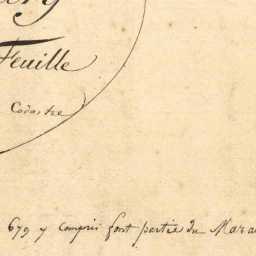 Feuille
Cadastre
679 y compris font partie du Mara